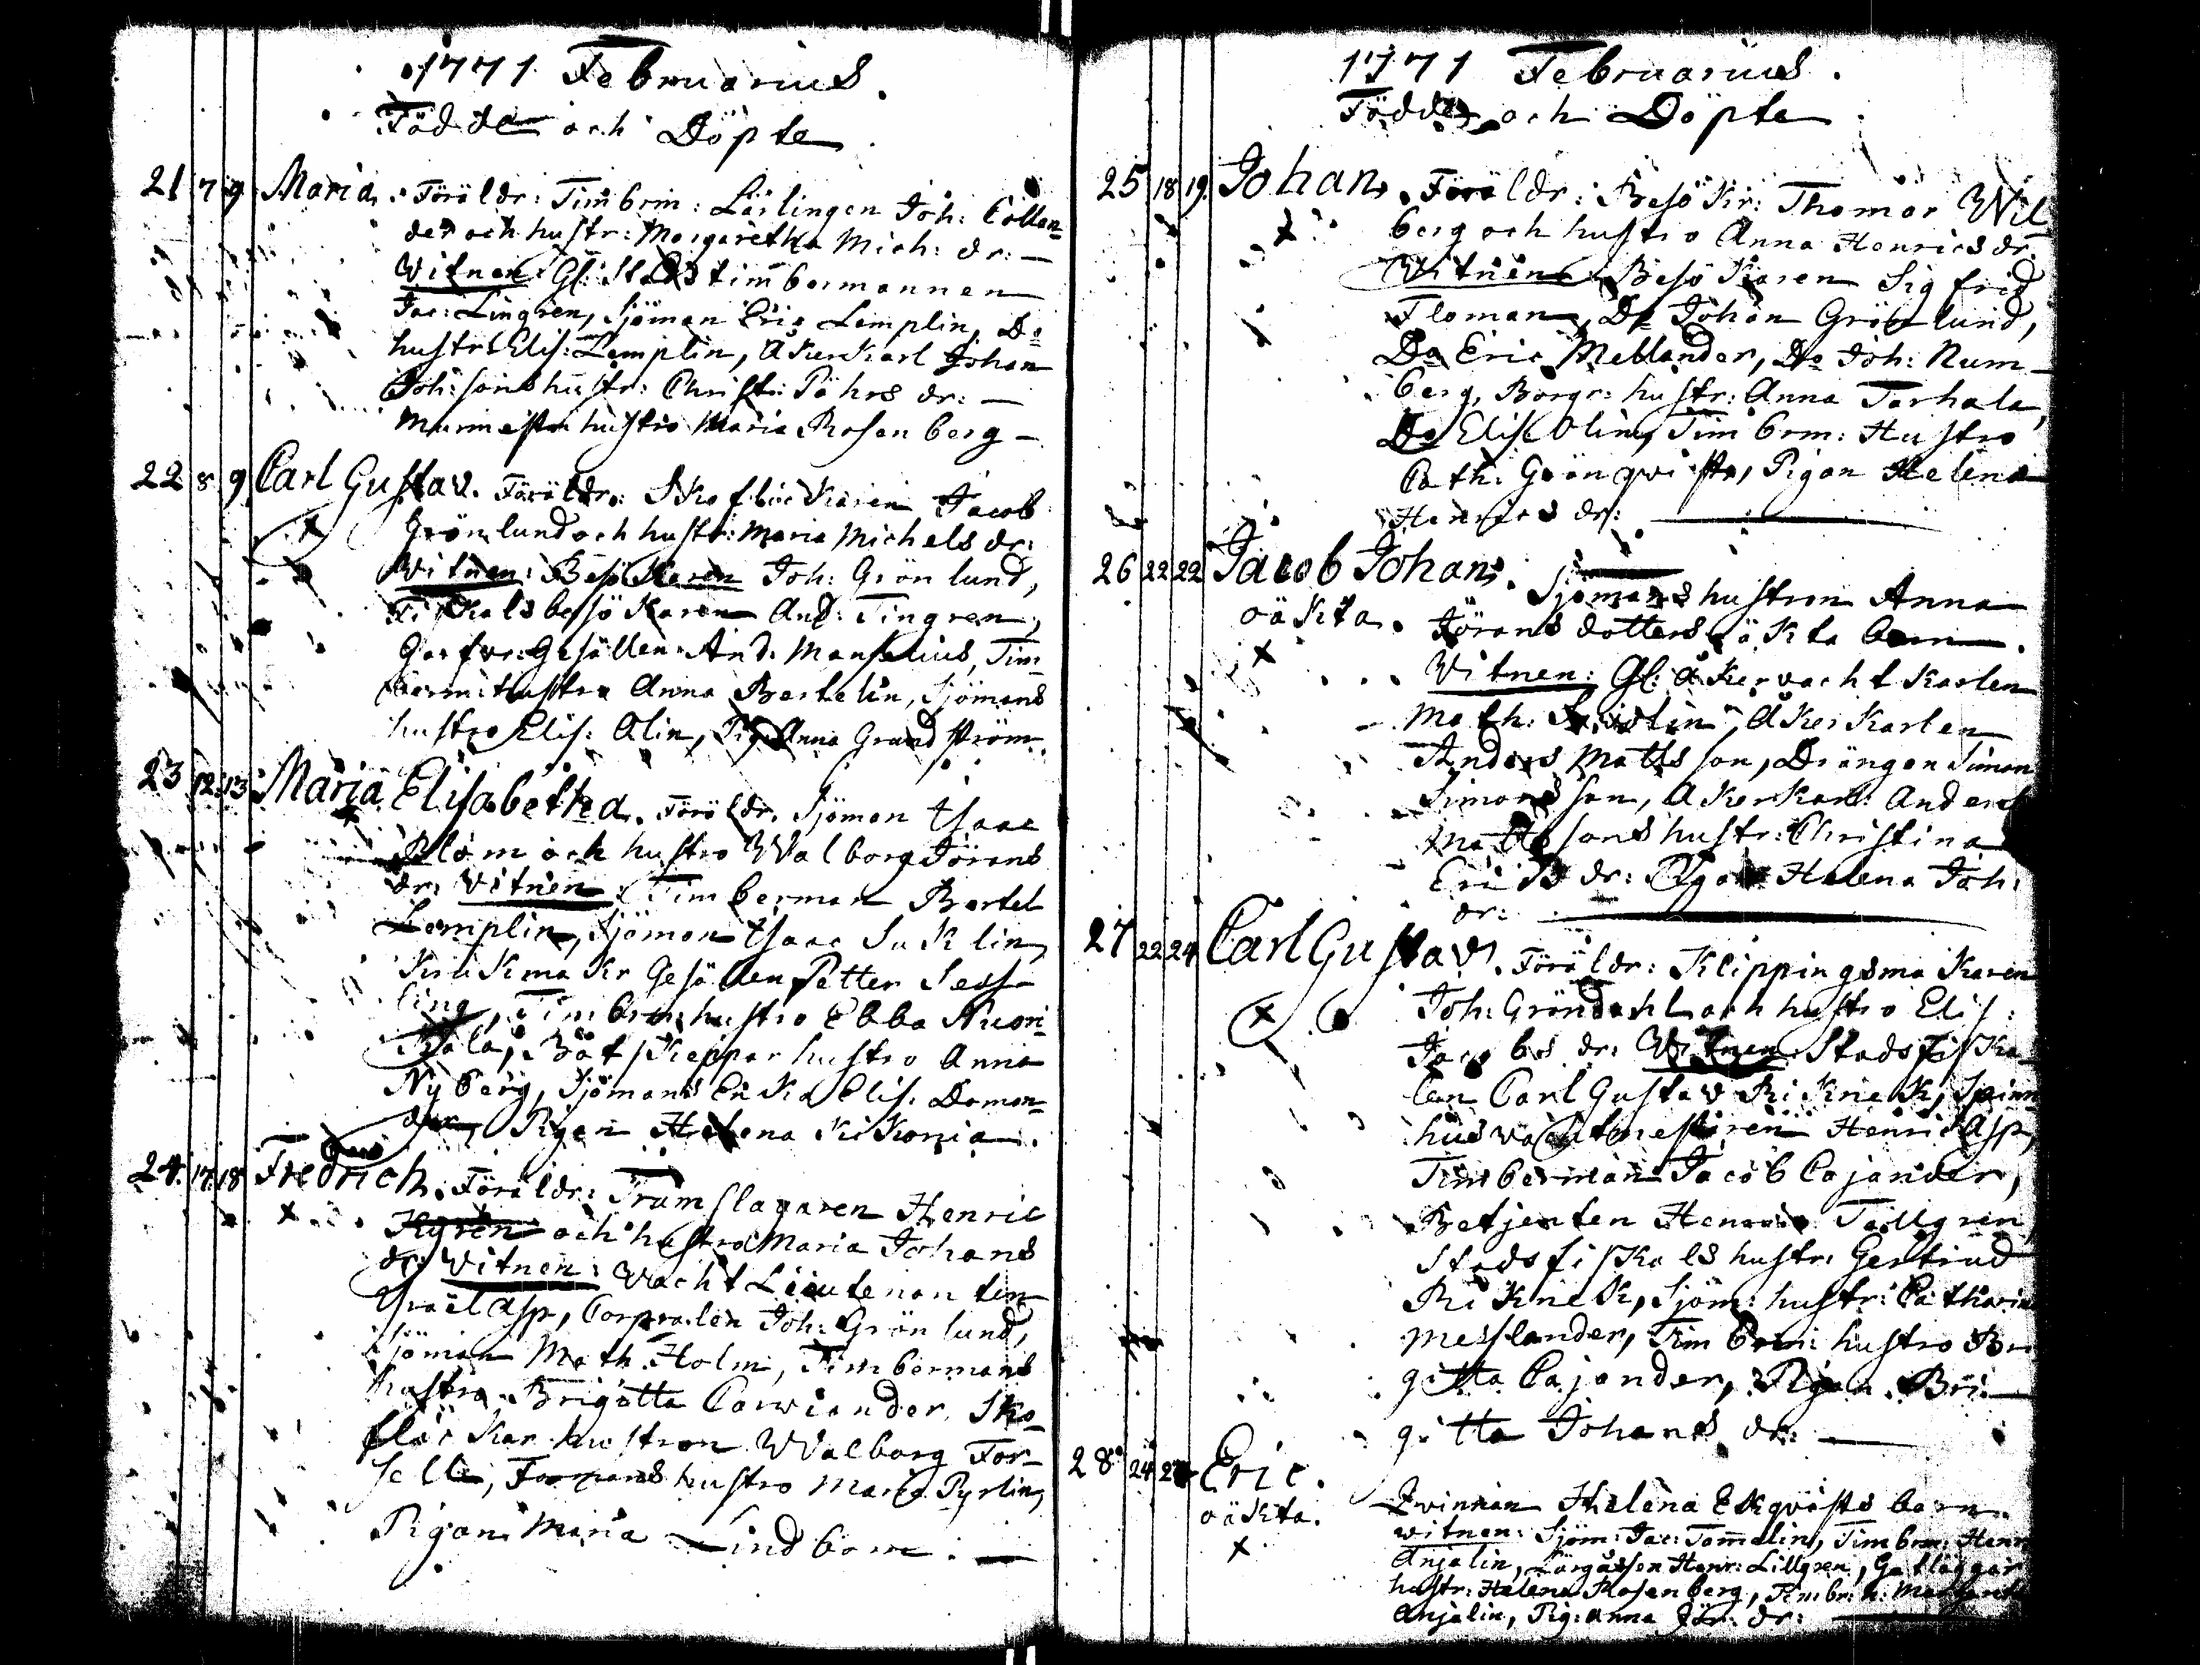 1771 Februarius.
Födde och Döpte
21 7 9 Maria. Föräldr: Timbrm: Lärlingen Joh: Collan-
der och hustr: Margaretha Mich: dr: —
Witnen: Gl: Stads timbermannen
Jac: Lingren, Sjöman Eric Lemplin, Do
hustr Elis: Lemplin, Åkerkarl Johan
Joh:sons hustr: Christ: Påhrs dr: —
Murmest hustro Maria Rosenberg —
22 8 9 Carl Gustav. Föräldr: Skoflickaren Jacob
x Grönlund och hustr: Maria Michels dr:
Witnen: Besökaren Joh: Grönlund,
Fiskals besökaren And: Tingren,
Garfvr: Gesällen And: Manselius, Tim-
bermr hustro Anna Bertelin, Sjömans
hustro Elis: Alin, Pig: Anna Grandström.
23 12 13 Maria Elisabetha. Föräldr. Sjöman Isaac
Blom och hustro Walborg Jörans
dr: Witnen: Timberman Bertel
Lemplin, Sjöman Isaac Suklin,
Krukmakr Gesällen Petter Sess-
ling, Timbrm: hustro Ebba Nuori-
kala, Båtskeppar hustro Anna
Nyberg, Sjömans Enka Elis: Daman-
der, Pigan Helena Kikonia.
24. 17. 18 Fredrich. Föräldr: Trumslagaren Henric
x Hgren och hustro Maria Johans
dr: Witnen: Vacht Lieutenanten
Israel Asp, Corpralen Joh: Grönlund,
sjöman Math. Holm, Timbermans
hustro Brigitta Carviander, Sko-
flickar hustron Walborg For-
sell, Formans hustro Maria Pyrlin,
Pigan Maria Lindbom. —
1771 Februarius.
Födde och Döpte
25 18 19. Johan. Föräldr: Besökr: Thomas Wil-
x berg och hustro Anna Henrics dr:
Witnen: Besökaren Sigfrid
Floman, Do Johan Grönlund,
Do Eric Mellander, Do Joh: Rum-
berg, Borgr: hustr: Anna Tarhala,
Do Elis Olin, Timbrm: Hustro
Cath: Grönqvist, Pigan Helena
Henrics dr: —
26 22 22 Jacob Johan. Sjömans hustron Anna
oäkta. Jörans dotters oäkta barn.
x Witnen: Gl: åkervachtkarlen
Math: åkerkarlen
Anders Matts son, Drängen Simon
Simons son, Åkerkarl: Anders
Matts sons hustr: Christina
Erics dr: Pigan Helena Joh:
dr: —
27 22 24 Carl Gustav. Föräldr: Klippingsmakaren
x Joh: Gröndahl och hustro Elis:
Jacobs dr: Witnen: Stads Fiska-
len Carl Gustav Riknek, Spinn-
hus vachtmestaren Henric Asp,
Timberman Jacob Cajander,
Betjenten Henric Tallgren,
Stads fiskals hustr: Gertrud
Riknek, Sjöm: hustr: Catharina
Messlander, Timbrm: hustro Bri-
gitta Cajander, Pigan Bri-
gitta Johans dr: —
28 24 Eric.
oäkta. Qvinnan Helena Ekqvists barn.
x witnen: Sjöm: Jac: Tommelin, Timbrm: Henr:
Anjalin, Lärgåsson Henr: Lillgren, Gatläggar
hustr: Helena Rosenberg, Timbr: h: Margaret
Anjalin, Pig: Anna Jör: dr: —